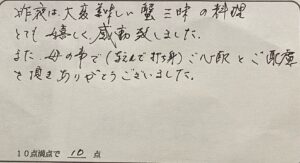 昨夜は、大変美味しい蟹三昧の料理
とても嬉しく、感動致しました。
また、母の事で（転んで打ち身）ご心配とご配慮
を頂きありがとうございました。
10点満点で 10 点